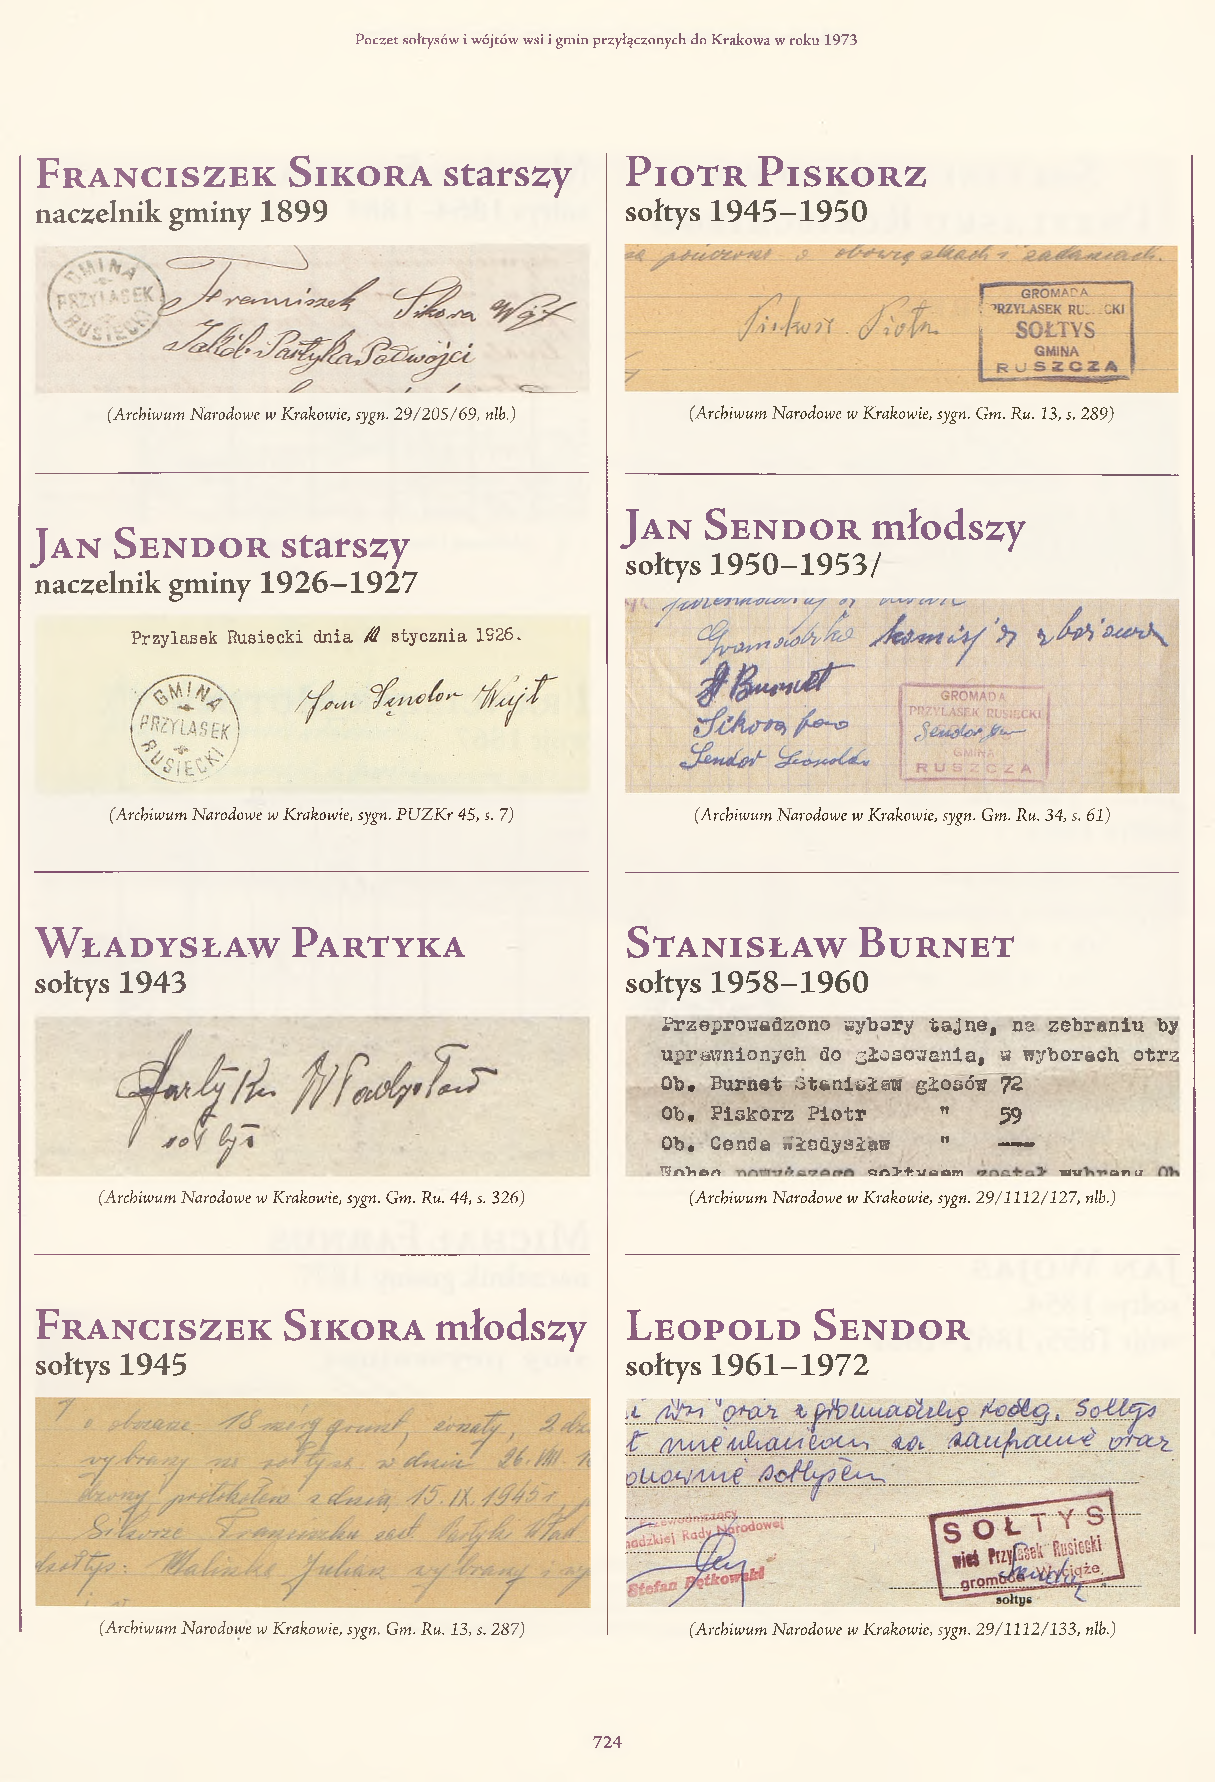 Poczet sołtysów i wójtów wsi i gmin przyłączonych do Krakowa w roku 1973
Franciszek Sikora starszy
naczelnik gminy 1899
GMINA
PRZYLASEK
RUSIECKI
Franciszek Sikora Wójt
Jakób Partyka Podwójci
(Archiwum Narodowe w Krakowie, sygn. 29/205/69, nlb.)
Jan Sendor starszy
naczelnik gminy 1926–1927
Przylasek Rusiecki dnia stycznia 1926.
GMINA
PRZYLASEK
RUSIECKI
Jan Sendor Wujt
(Archiwum Narodowe w Krakowie, sygn. PUZKr 45, s. 7)
Władysław Partyka
sołtys 1943
Partyka Władysław
sołtys
(Archiwum Narodowe w Krakowie, sygn. Gm. Ru. 44, s. 326)
Franciszek Sikora młodszy
sołtys 1945
18 mórg grunt, żonaty, 2
wybrany na sołtysa w dniu 26.VIII
protokołem z dnia 15.IX.1945 r,
Sikorze Franciszku zast. Partyki Wład.
Malinka Julian wybrany i
(Archiwum Narodowe w Krakowie, sygn. Gm. Ru. 13, s. 287)
Piotr Piskorz
sołtys 1945–1950
o obowiązkach i zadaniach.
Piskorz Piotr
GROMADA
PRZYLASEK RU CKI
SOŁTYS
GMINA
RUSZCZA
(Archiwum Narodowe w Krakowie, sygn. Gm. Ru. 13, s. 289)
Jan Sendor młodszy
sołtys 1950–1953/
Gromadzka komisja zbożowa
Burnet
Sikora Jan
Sendor Leopold
GROMADA
PRZYLASEK RUSIECKI
Sendor Jan
GMINA
RUSZCZA
(Archiwum Narodowe w Krakowie, sygn. Gm. Ru. 34, s. 61)
Stanisław Burnet
sołtys 1958–1960
Przeprowadzono wybory tajne, na zebraniu by
uprawnionych do głosowania, w wyborach otrz
Ob. Burnet Stanisław głosów 72
Ob. Piskorz Piotr " 59
Ob. Cenda Władysław " —
Wobec powyższego sołtysem został wybrany Ob
(Archiwum Narodowe w Krakowie, sygn. 29/1112/127, nlb.)
Leopold Sendor
sołtys 1961–1972
wsi oraz z gromadzką Radą. Sołtys
mieszkańcom za zaufanie oraz
sołtysem
Przewodniczący
adzkiej Rady Narodowej
Stefan Pętkowski
SOŁTYS
wieś Przylasek Rusiecki
gromada Wyciąże
sołtys
(Archiwum Narodowe w Krakowie, sygn. 29/1112/133, nlb.)
724